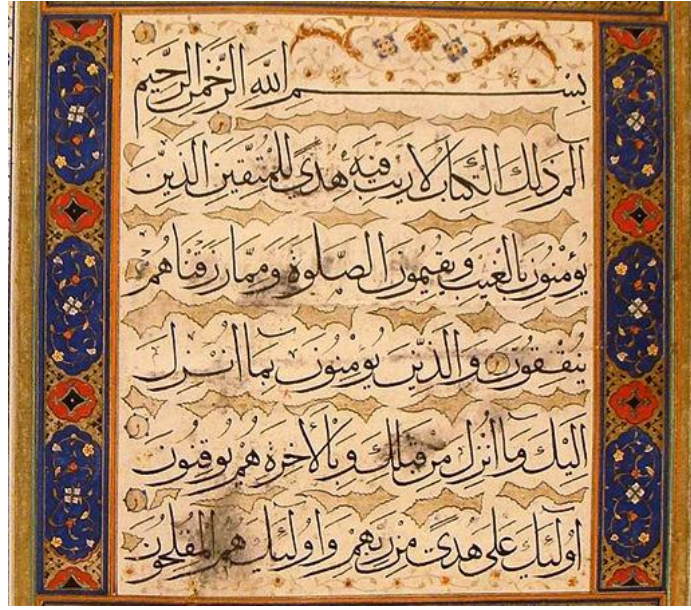 بسم الله الرحمن الرحيم
الم ذلك الكتاب لا ريب فيه هدي للمتقين الذين
يؤمنون بالغيب ويقيمون الصلوة ومما رزقناهم
ينفقون والذين يومنون بما انزل
اليك وما انزل من قبلك وبالاخرة هم يوقنون
اولئك على هدى من ربهم واولئك هم المفلحون